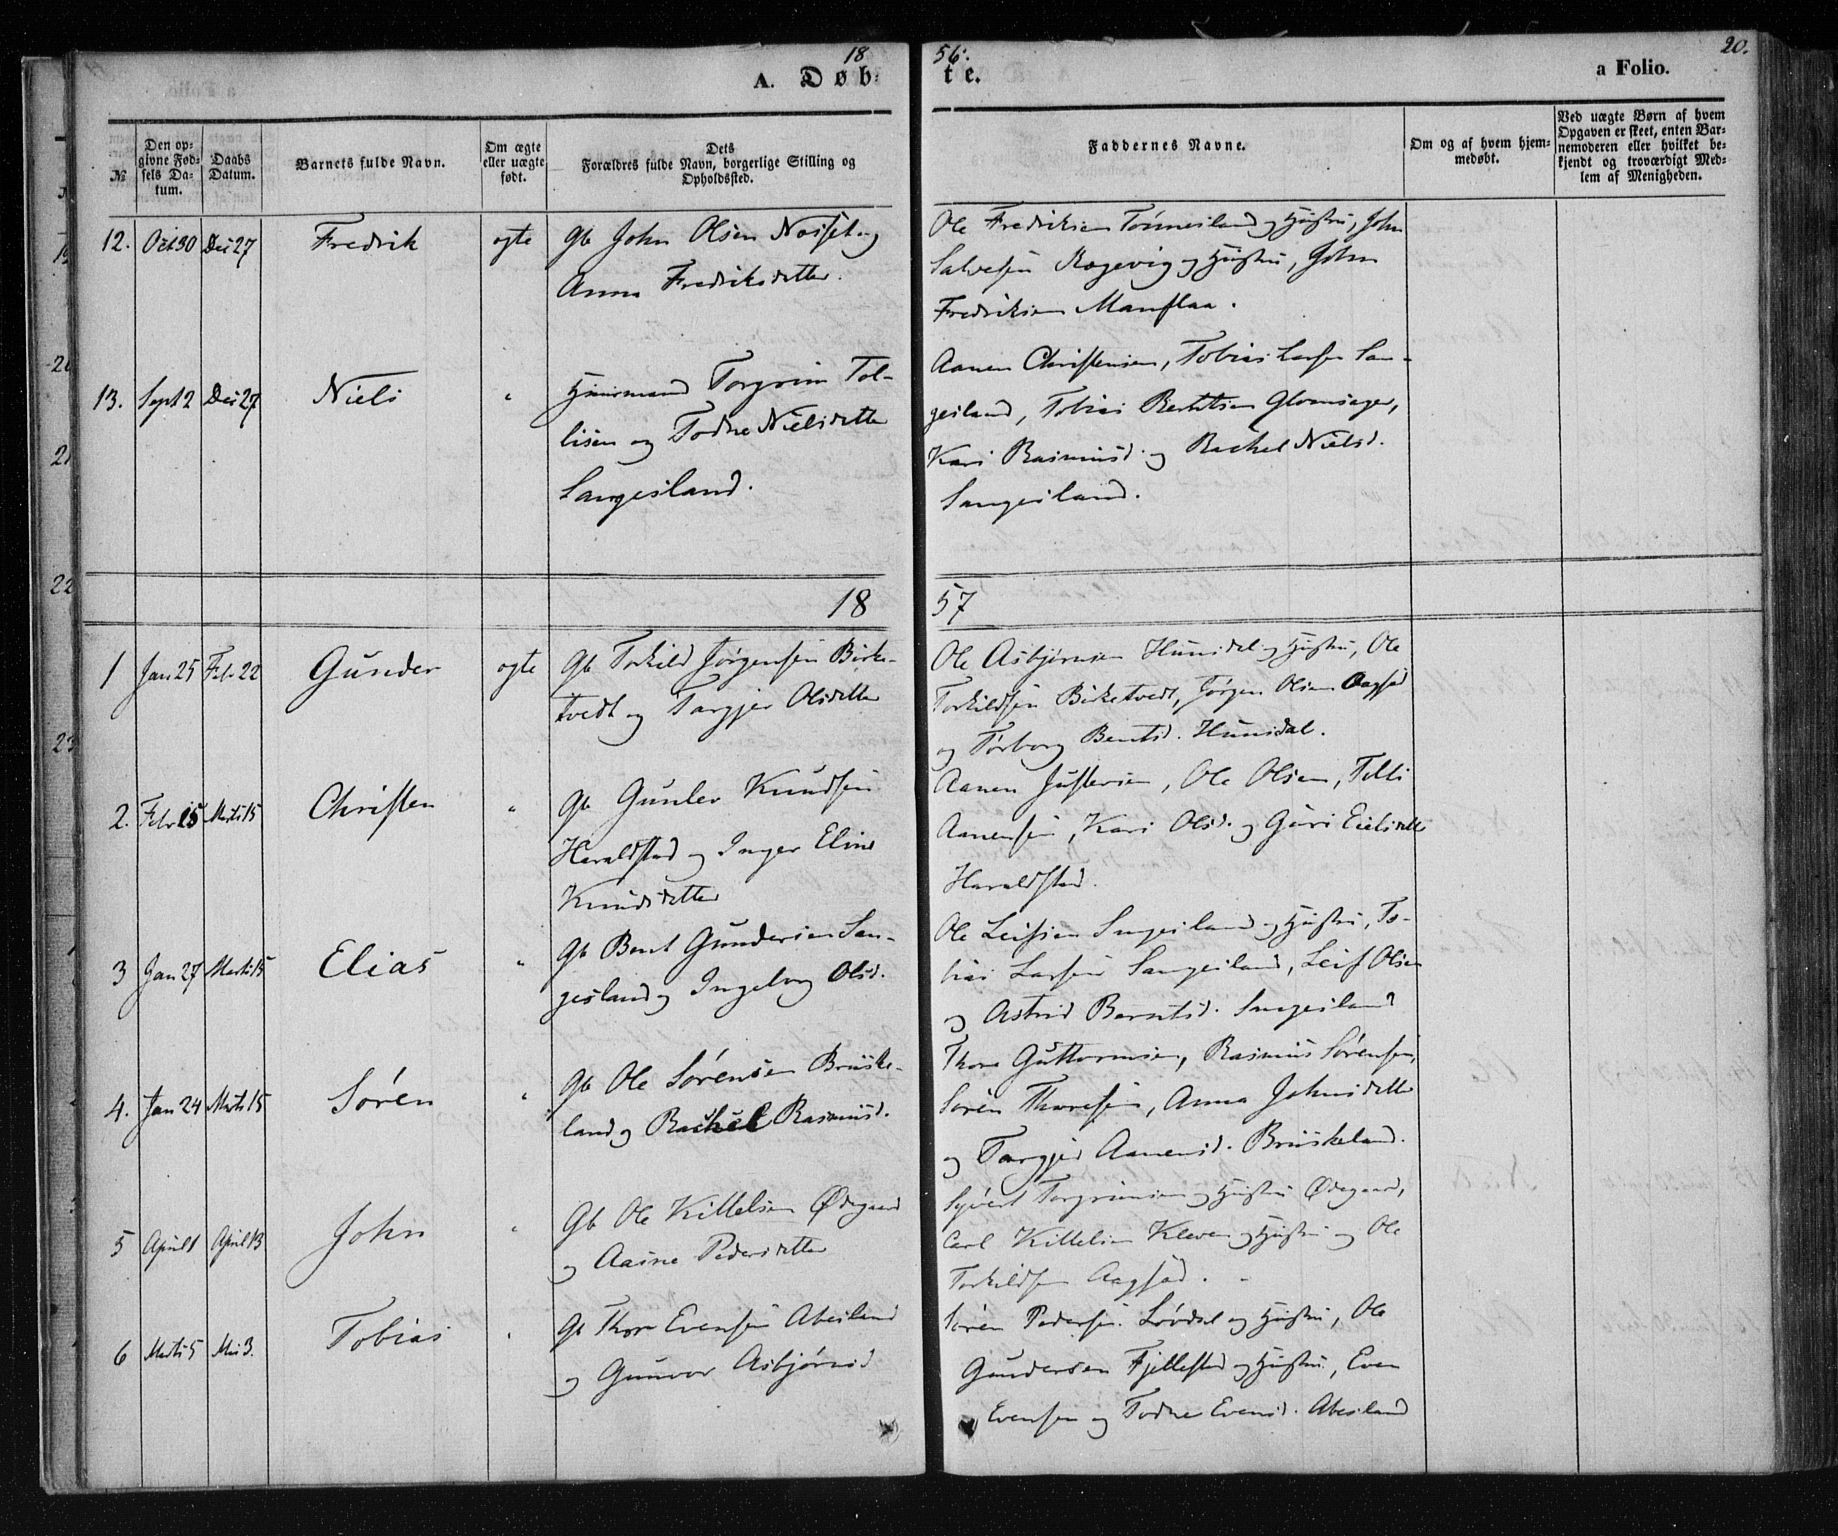 1856.
20.
A. Døbte.
a Folio.
№
Den opgivne Fødsels Datum.
Daabs Datum.
Barnets fulde Navn.
Om ægte eller uægte født.
Dets Forældres fulde Navn, borgerlige Stilling og Opholdssted.
Faddernes Navne.
Om og af hvem hjemmedøbt.
Ved uægte Børn af hvem Opgaven er skeet, enten Barnemoderen eller hvilket bekjendt og troværdigt Medlem af Menigheden.
12. Oct 30 Dec 27 Fredrik ægte
Gb John Olsen og
Anna Fredriksdatter.
Ole Fredriksen Tønnesland og Hustru, John
Salvesen og Hustru, John
Fredriksen Manflaa.
13. Sept 2 Dec 27 Niels "
Huusmand Torgrim Tol-
lisen og Todne Nielsdatter
Langesland.
Aanen Christensen, Tobias Larsen Lan-
gesland, Tobias Berntsen
Kari Rasmusd. og Rachel Nielsd.
Langesland.
1857
1 Jan 25 Feb 22 Gunder ægte
Gb Torkild Jørgensen Birke-
tvedt og Targjer Olsdatter
Ole Asbjørnsen Hunsdal og Hustru, Ole
Torkildsen Birketvedt, Jørgen Olsen Aagsød
og Tørborg Bentsd. Hunsdal.
2. Febr 15 Marts 15 Christen "
Gb Gunlev Knudsen
Haraldstad og Inger Eline
Knudsdatter
Aanen Justesen, Ole Olsen, Tellev
Aanensen, Kari Olsd. og Guri Eielsdatter
Haraldstad.
3 Jan 27 Marts 15 Elias "
Gb Bent Gundersen Lan-
gesland og Ingeborg Olsd.
Ole Leifsen Langesland og Hustru, To-
bias Larsen Langesland, Leif Olsen
og Astrid Berntsd. Langesland
4. Jan 24 Marts 15 Søren "
Gb Ole Sørensen Bruske-
land og Rachel Rasmusd.
Thore Guttormsen, Rasmus Sørensen,
Søren Thoresen, Anna Johnsdatter
og Targjer Aanensd. Bruskeland.
5 April 1 April 13 John "
Gb Ole Kittelsen Ødegaard
og Aasne Pedersdatter
Syvert Torgrimsen og Hustru Ødegaard,
Carl Kittelsen Kleven og Hustru og Ole
Torkildsen Aagsød.
6 Marts 5 Mai 3. Tobias "
Gb Thor Evensen Abesland
og Gunvor Asbjørnsd
Søren Pedersen Løvdal og Hustru, Ole
Gundersen Fjellestad og Hustru, Even
Evensen og Todne Evensd. Abesland